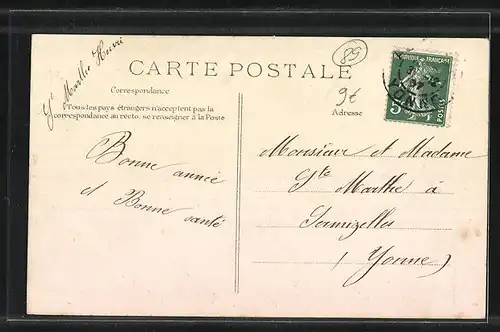 Gte Marthe Henri
89
CARTE POSTALE
9t
Correspondance
Tous les pays étrangers n'acceptent pas la
correspondance au recto, se renseigner à la Poste
Adresse
REPUBLIQUE FRANÇAISE
5
POSTES
Bonne année
et Bonne santé
Monsieur et Madame
Gte Marthe à
(Yonne)